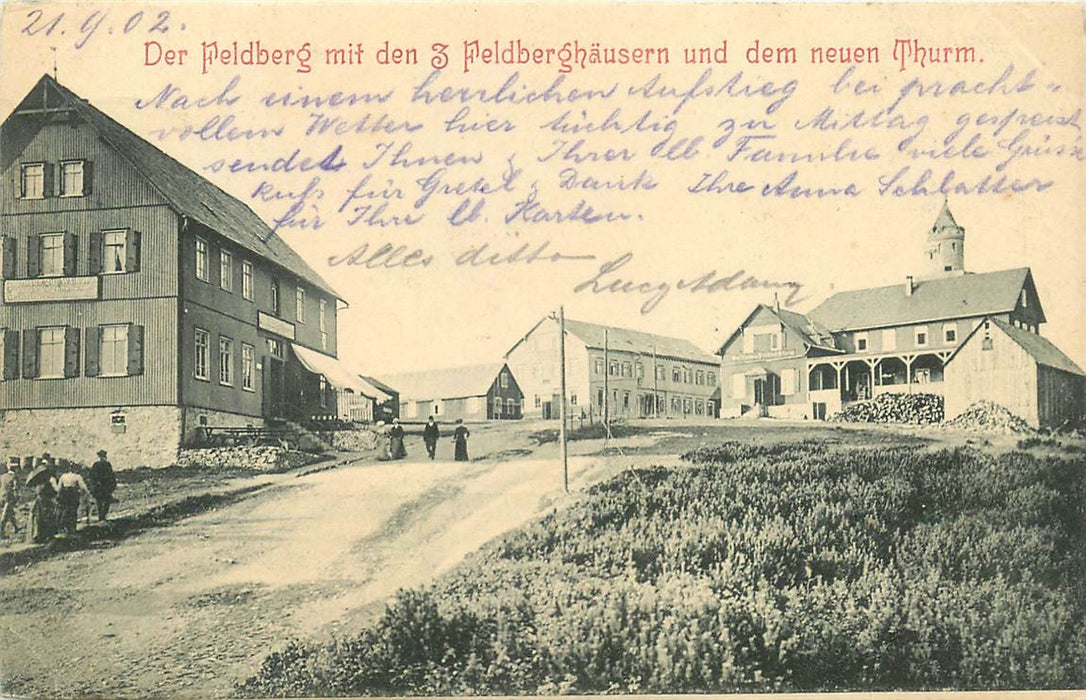 21.9.02.
Der Feldberg mit den 3 Feldberghäusern und dem neuen Thurm.
Nach einem herrlichen Aufstieg bei pracht-
vollem Wetter hier tüchtig zu Mittag gespeist
sendet Ihnen & Ihrer lb. Familie viele Grüsse
Kuß für Gretel & Dank Ihre Anna Schlatter
für Ihre lb. Karten.
Alles ditto
Lucy